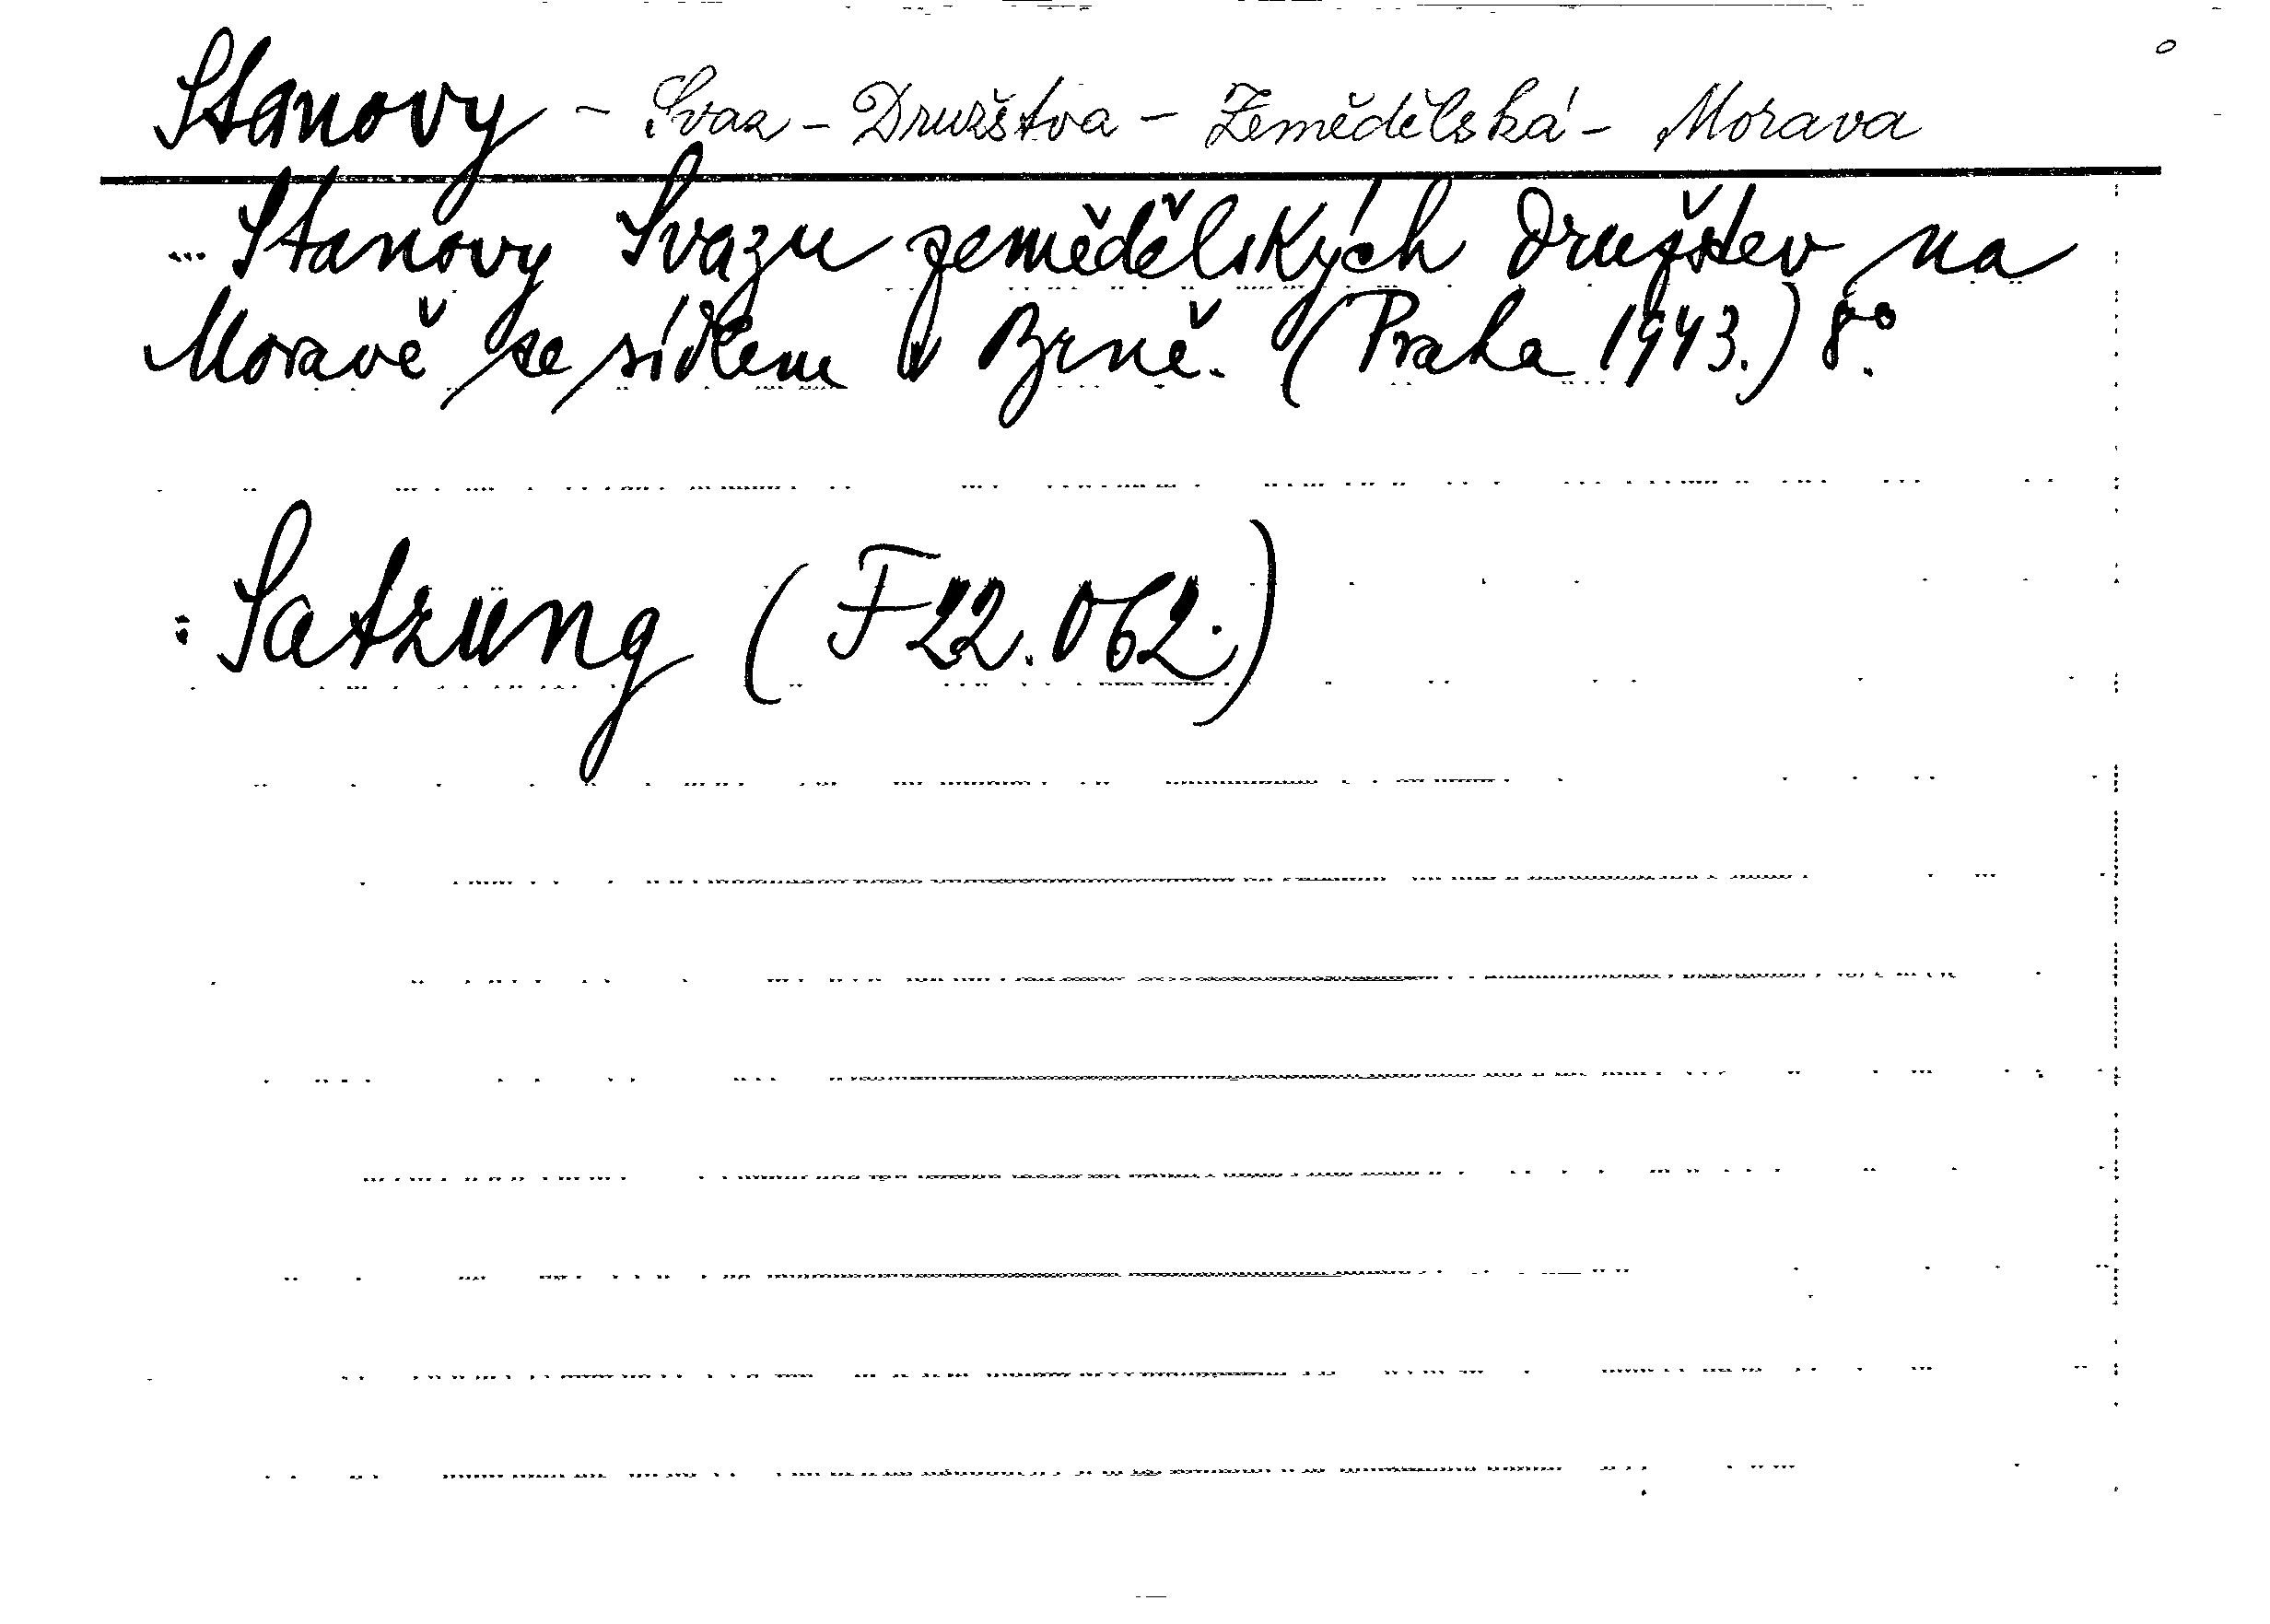 Stanovy - Svaz - Družstva - Zemědělská - Morava
Stanovy Svazu zemědělských družstev na
Moravě se sídlem v Brně. (Praha 1943.) 8°.
Satzung (F 22.062.)